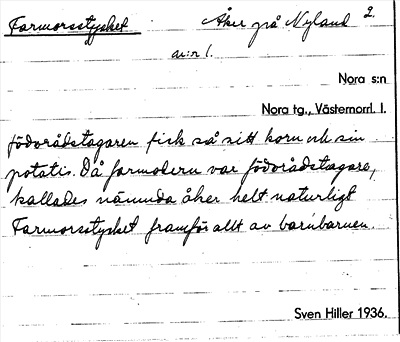 Farmorsstycket Åker på Nyland 2.
ar:n 1.
Nora s:n
Nora tg., Västernorrl. l.
födorådstagaren fick så sitt korn och sin
potatis. Då farmodern var födorådstagare,
kallades nämnda åker helt naturligt
Farmorsstycket framför allt av barnbarnen.
Sven Hiller 1936.